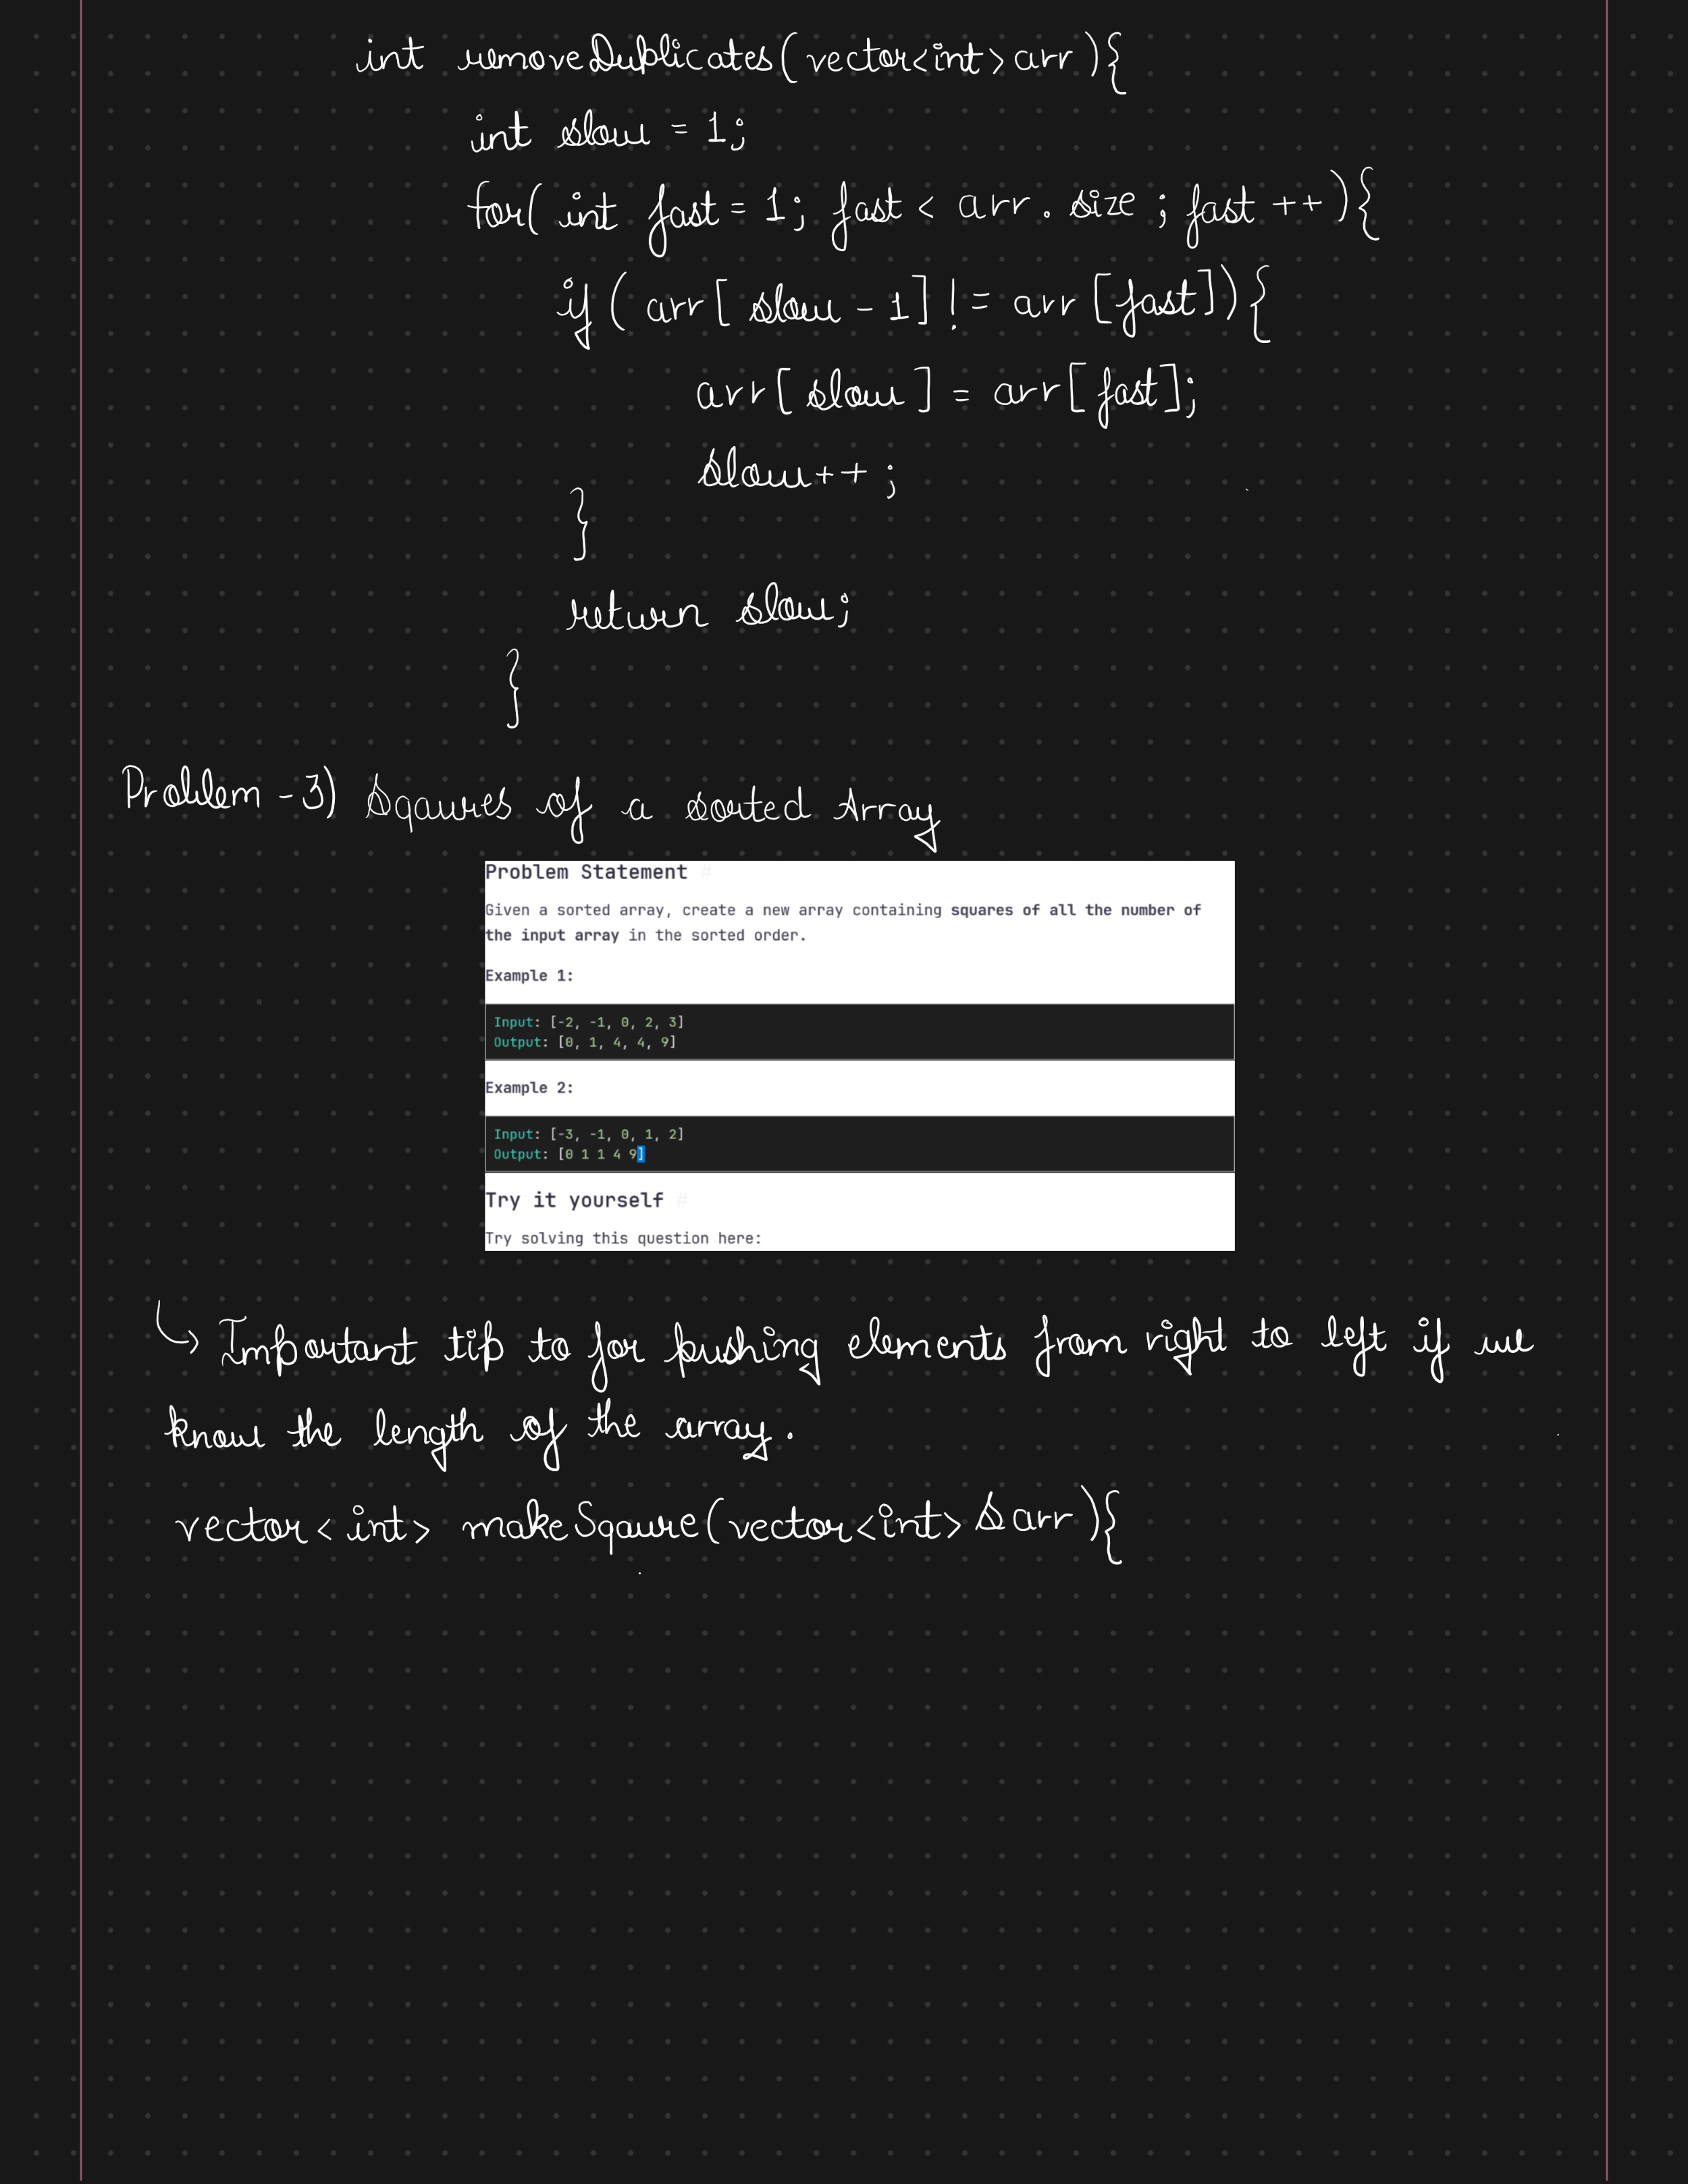 int removeDuplicates(vector<int> arr){
int slow = 1;
for( int fast = 1; fast < arr. size ; fast ++){
if ( arr[ slow - 1] != arr [fast]){
arr[ slow ] = arr[ fast];
slow++ ;
}
return slow;
}
Problem -3) Sqaures of a sorted Array
Problem Statement #
Given a sorted array, create a new array containing squares of all the number of
the input array in the sorted order.
Example 1:
Input: [-2, -1, 0, 2, 3]
Output: [0, 1, 4, 4, 9]
Example 2:
Input: [-3, -1, 0, 1, 2]
Output: [0 1 1 4 9]
Try it yourself #
Try solving this question here:
↳ Important tip to for pushing elements from right to left if we
know the length of the array.
vector<int> makeSqaure(vector<int> &arr){